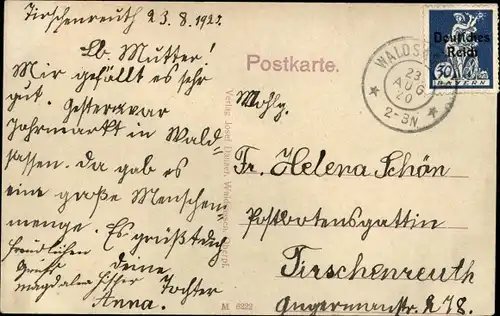 Tirschenreuth 23.8.192
Lb. Mutter!
Mir gefällt es sehr
gut. Gestern war
Jahrmarkt in Wald-
sassen. Da gab es
eine große Menschen-
menge. Es grüßt Euch
freundlichen
Gruß
deine
Tochter
Anna.
Postkarte.
Verlag Josef Waldsassen
M 6222
WALDS
23
AUG
20
2-3N
Deutsches
Reich
30
BAYERN
Wohlg.
Fr. Helena Schön
Postbotensgattin
Tirschenreuth
Angermannstr. 278.